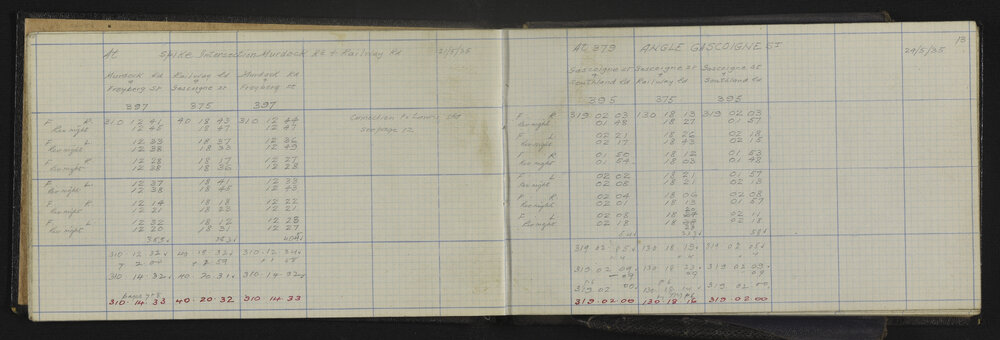 At SPIKE Intersection Murdock Rd & Railway Rd 21/5/35
Murdock Rd Railway Rd Murdock Rd
Freyberg St Gascoigne St Freyberg St
397 375 397
F R 310 12 41 40 18 43 310 12 44 Connection to Lowry St
Rev night 12 45 18 47 12 47 See page 12
F L 12 33 18 37 12 36
Rev night 12 38 18 33 12 49
F R 12 28 18 17 12 27
Rev night 12 38 18 36 12 28
F L 12 37 18 41 12 33
Rev night 12 38 18 45 12 43
F R 12 14 18 18 12 22
Rev night 12 21 18 23 12 21
F L 12 32 18 12 12 28
Rev night 12 20 18 31 12 27
310 12 32 40 18 32 310 12 34
+ 2 00 + 1 59
310 14 32 40 20 31 310 14 32
310 14 33 40 20 32 310 14 33
13
At 379 ANGLE GASCOIGNE ST 24/5/35
Gascoigne St Gascoigne St Gascoigne St
Southland Rd Railway Rd Southland Rd
395 375 395
F R 319 02 03 130 18 13 319 02 03
Rev night 01 48 18 27 01 57
F L 02 21 18 26 02 18
Rev night 02 17 18 43 02 15
F R 01 50 18 12 01 53
Rev night 01 54 18 03 01 48
F L 02 02 18 21 01 57
Rev night 02 08 18 21 02 18
F R 02 04 18 06 02 08
Rev night 02 01 18 13 01 57
F L 02 08 18 02 11
Rev night 02 18 18 02 18
319 02 05 130 18 19 319 02 05
319 02 09 130 18 23 319 02 09
319 02 00 130 18 14 319 02 00
319 02 00 130 18 16 319 02 00